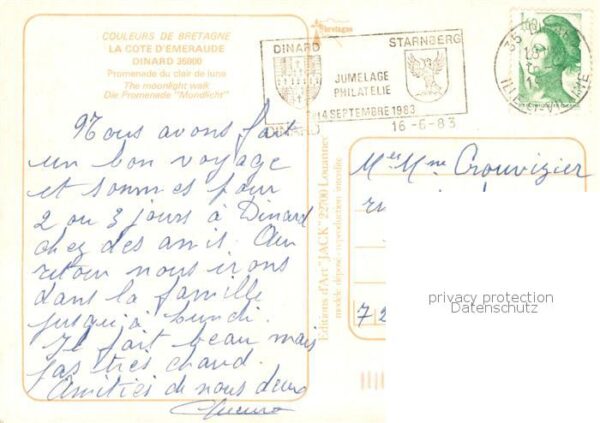 COULEURS DE BRETAGNE
LA COTE D'EMERAUDE
DINARD 35800
Promenade du clair de lune
The moonlight walk
Die Promenade "Mundlicht"
Bretagne
DINARD
STARNBERG
JUMELAGE
PHILATELIE
14 SEPTEMBRE 1983
16-6-83
35
ILLE-
Nous avons fait
un bon voyage
et sommes pour
2 ou 3 jours à Dinard
chez des amis. Au
retour nous irons
dans la famille
jusqu'à lundi.
Il fait beau mais
pas très chaud.
Amitiés de nous deux
Editions d'Art "JACK" 22700 Louannec
modèle déposé - reproduction interdite
M et Mme Crouvizier
72
privacy protection
Datenschutz